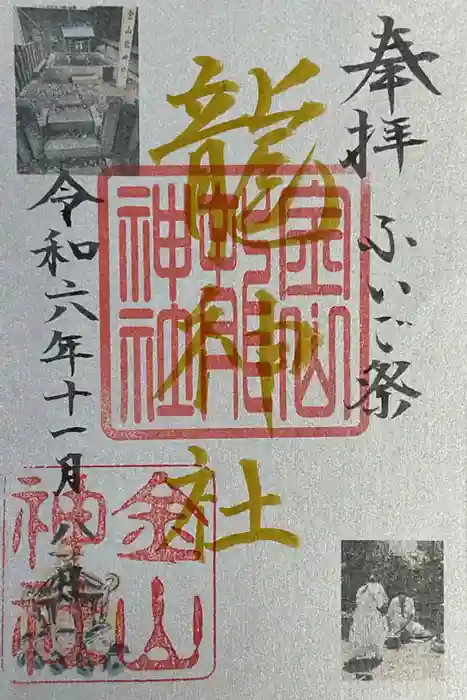 奉拝 ふいご祭
龍神社
令和六年十一月八日
金山
神社
金山龍神社